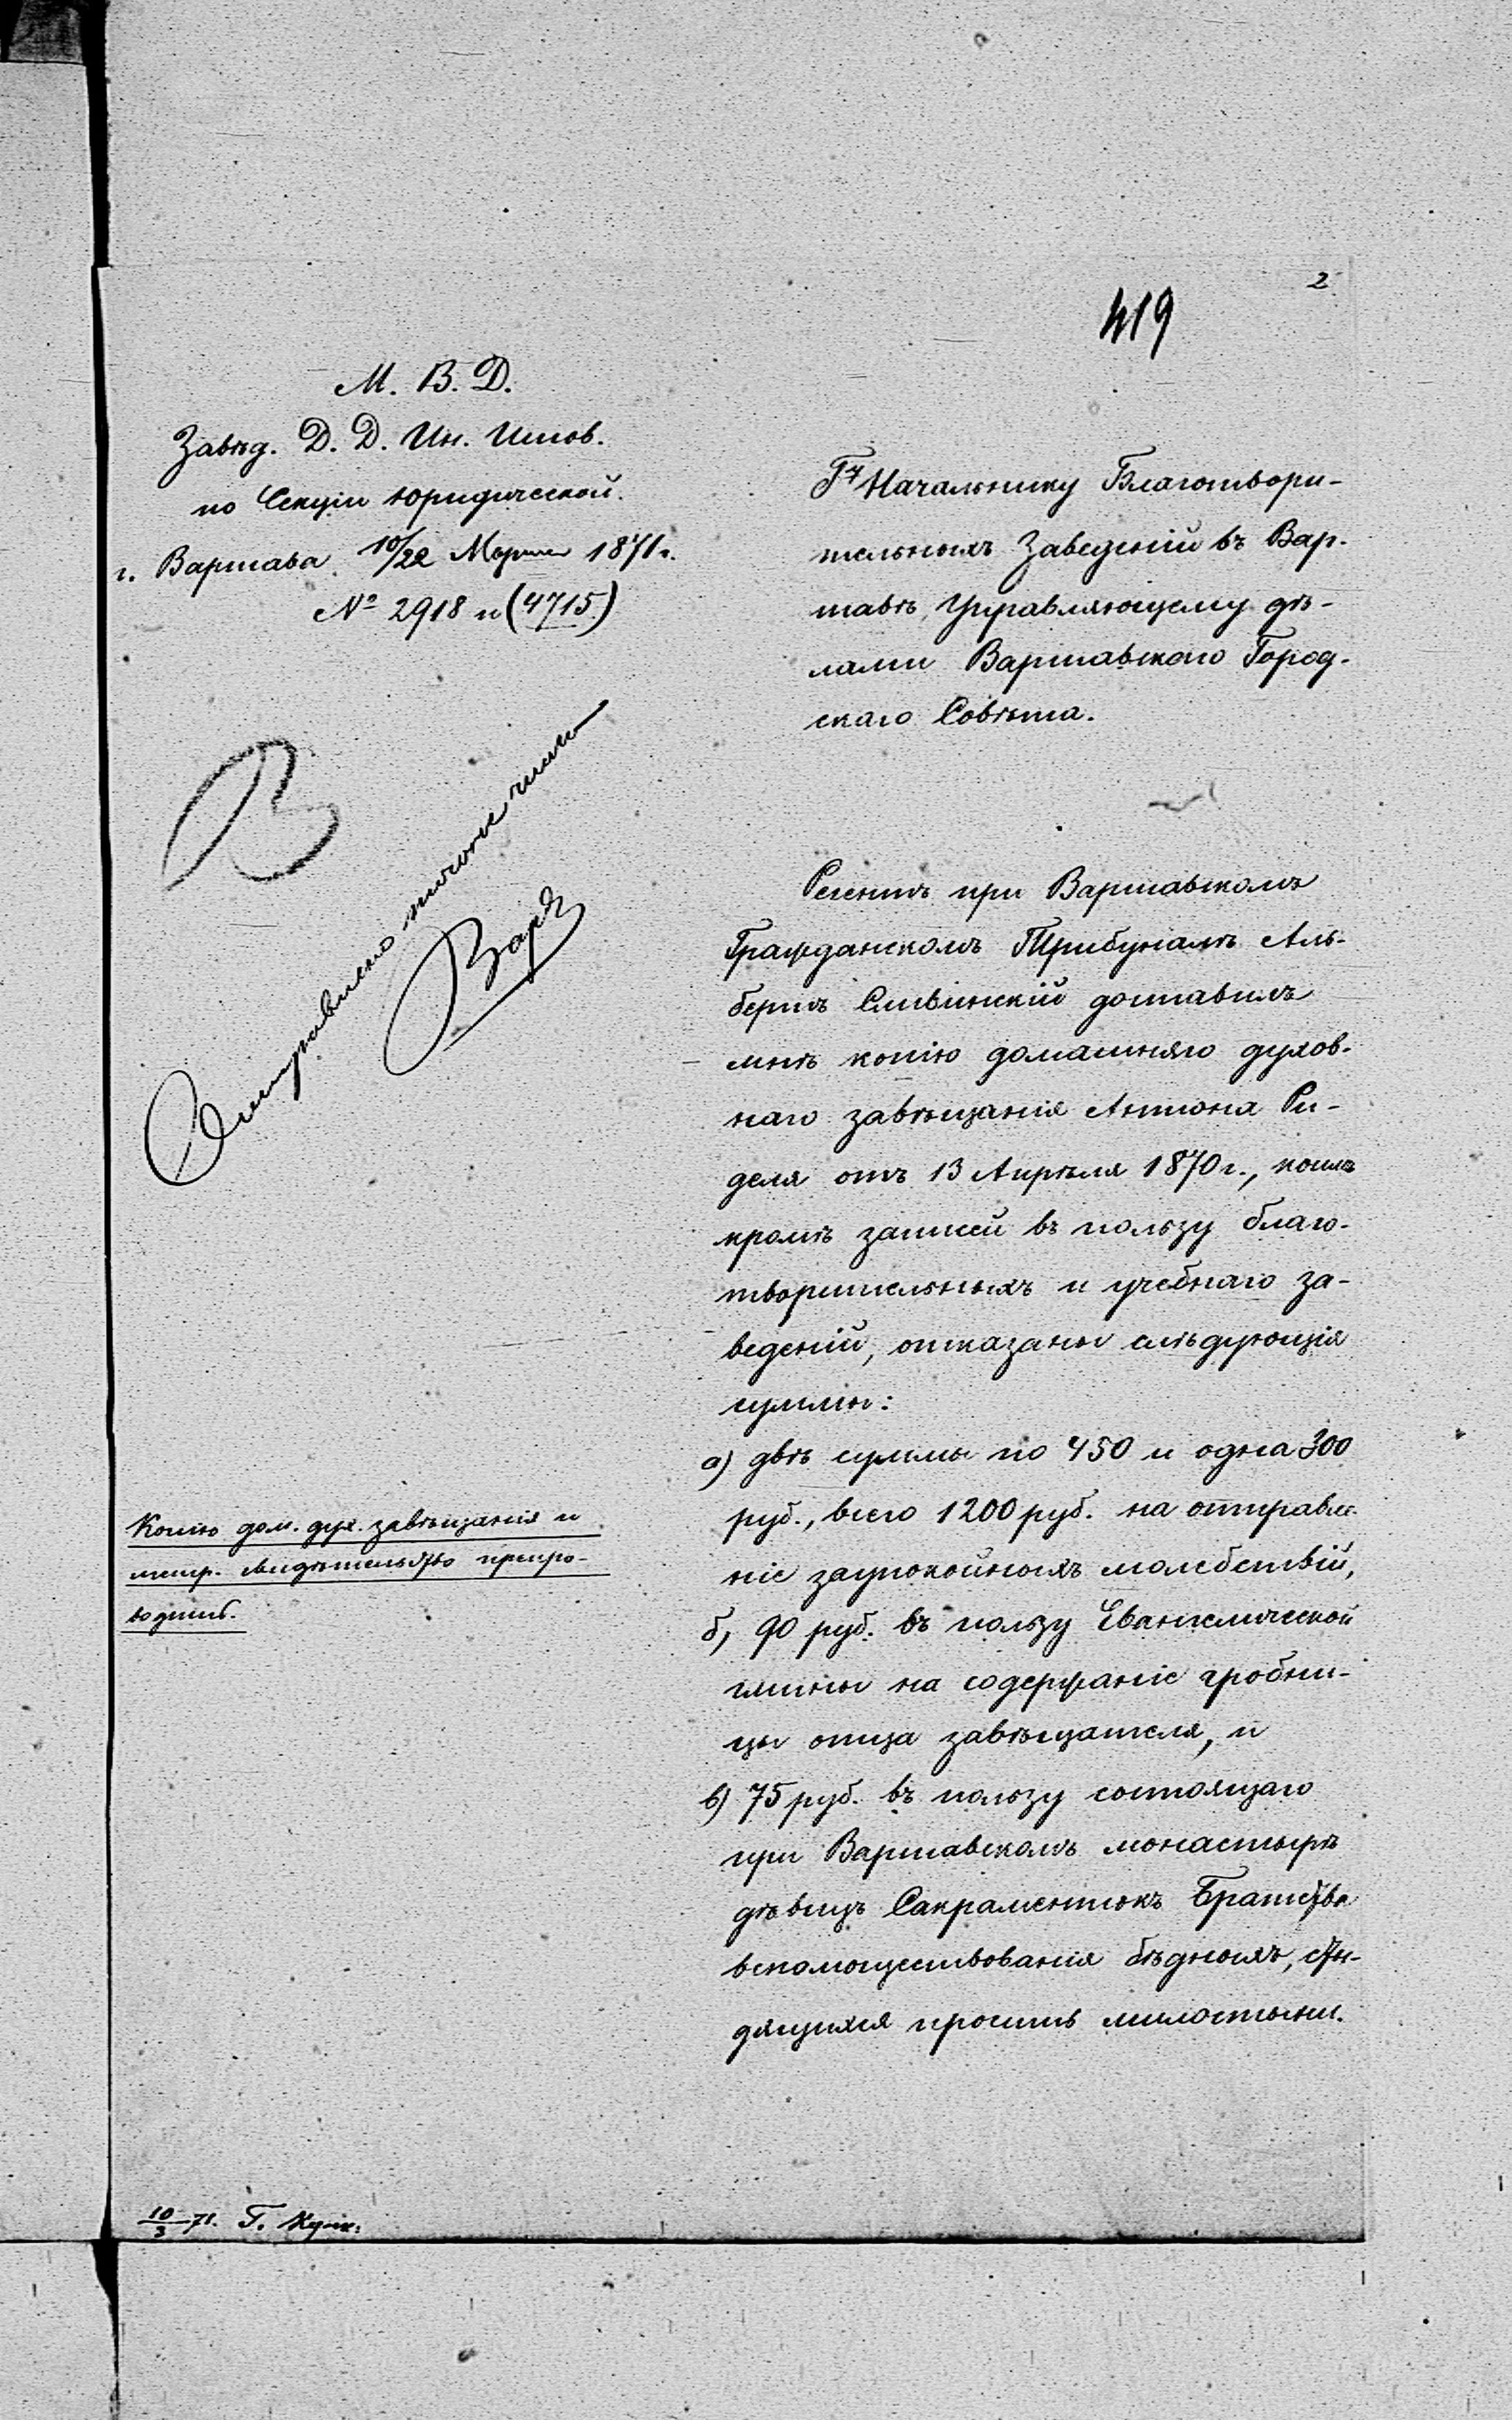 2
419
М. В. Д.
Завѣд. Д. Д. Ин. Испов.
по Секціи Юридической.
г. Варшава 10/22 Марта 1871 г.
№ 2918 и (4715)
Гу Начальнику Благотвори-
тельныхъ Заведеній въ Вар-
шавѣ, Управляющему дѣ-
лами Варшавскаго Город-
скаго Совѣта.
В
Отправлено того же числа
Регентъ при Варшавскомъ
Гражданскомъ Трибуналѣ Аль-
бертъ Сливинскій доставилъ
мнѣ копію домашняго духов-
наго завѣщанія Антона Ри-
деля отъ 13 Апрѣля 1870 г., коимъ
кромѣ записей въ пользу благо-
творительныхъ и учебнаго за-
веденій, отказаны слѣдующія
суммы:
а) двѣ суммы по 450 и одна 300
руб., всего 1200 руб. на отправле-
ніе заупокойныхъ молебствій,
б, 90 руб. въ пользу Евангелической
гмины на содержаніе гробни-
цы отца завѣщателя, и
в) 75 руб. въ пользу состоящаго
при Варшавскомъ монастырѣ
дѣвицъ Сакраментокъ Братства
вспомоществованія бѣднымъ, сты-
дящихся просить милостыни.
Копію дом. дух. завѣщанія и
метр. свидѣтельство препро-
водить.
10/3 71. Г.